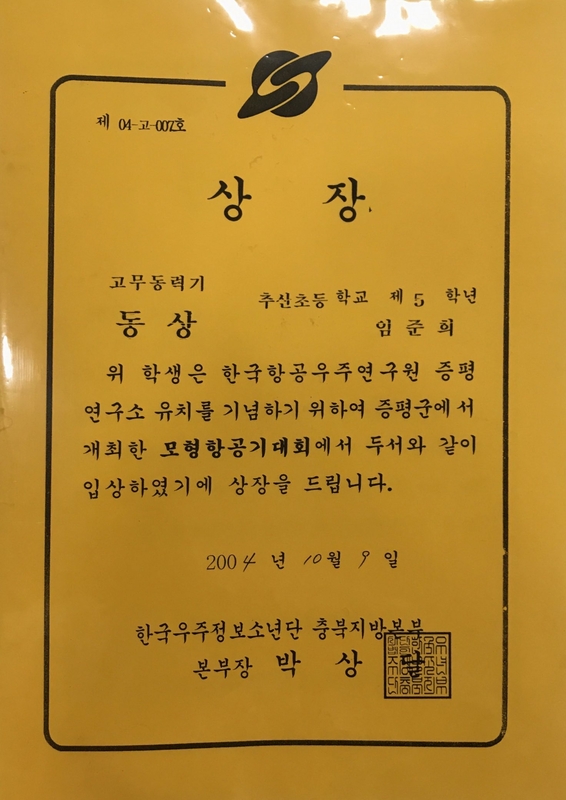 제 04-고-007호
상 장
고무동력기
추산초등학교 제 5 학년
동 상
임 준 희
위 학생은 한국항공우주연구원 증평
연구소 유치를 기념하기 위하여 증평군에서
개최한 모형항공기대회에서 두서와 같이
입상하였기에 상장을 드립니다.
2004 년 10월 9 일
한국우주정보소년단 충북지방본부
본부장 박 상 달